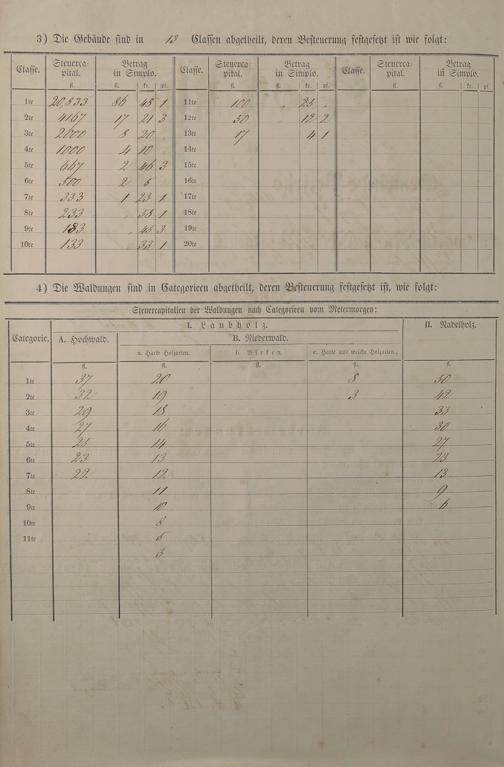 3) Die Gebäude sind in 13 Classen abgetheilt, deren Besteuerung festgesetzt ist wie folgt:
Classe. Steuerca-pital. Betrag in Simplo. Classe. Steuerca-pital. Betrag in Simplo. Classe. Steuerca-pital. Betrag in Simplo.
fl. fl. kr. pf. fl. fl. kr. pf. fl. fl. kr. pf.
1te 20,833 86 48 1 11te 100 „ 25 „
2te 4167 17 21 3 12te 50 12 2
3te 2000 8 20 „ 13te 17 4 1
4te 1000 4 10 14te
5te 667 2 46 3 15te
6te 500 2 5 16te
7te 333 1 23 1 17te
8te 233 „ 58 1 18te
9te 183 „ 45 3 19te
10te 133 „ 33 1 20te
4) Die Waldungen sind in Categorieen abgetheilt, deren Besteuerung festgesetzt ist, wie folgt:
Steuercapitalien der Waldungen nach Categorieen vom Metermorgen:
Categorie. I. Laubholz. II. Nadelholz.
A. Hochwald. B. Niederwald.
a. Harte Holzarten. b. Birken. c. Harte und weiche Holzarten.
fl. fl. fl. fl. fl.
1te 37 20 8 50
2te 32 19 3 42
3te 29 18 33
4te 27 16 30
5te 25 14 27
6te 23 13 23
7te 22 12 13
8te 11 9
9te 10 6
10te 8
11te 5
3